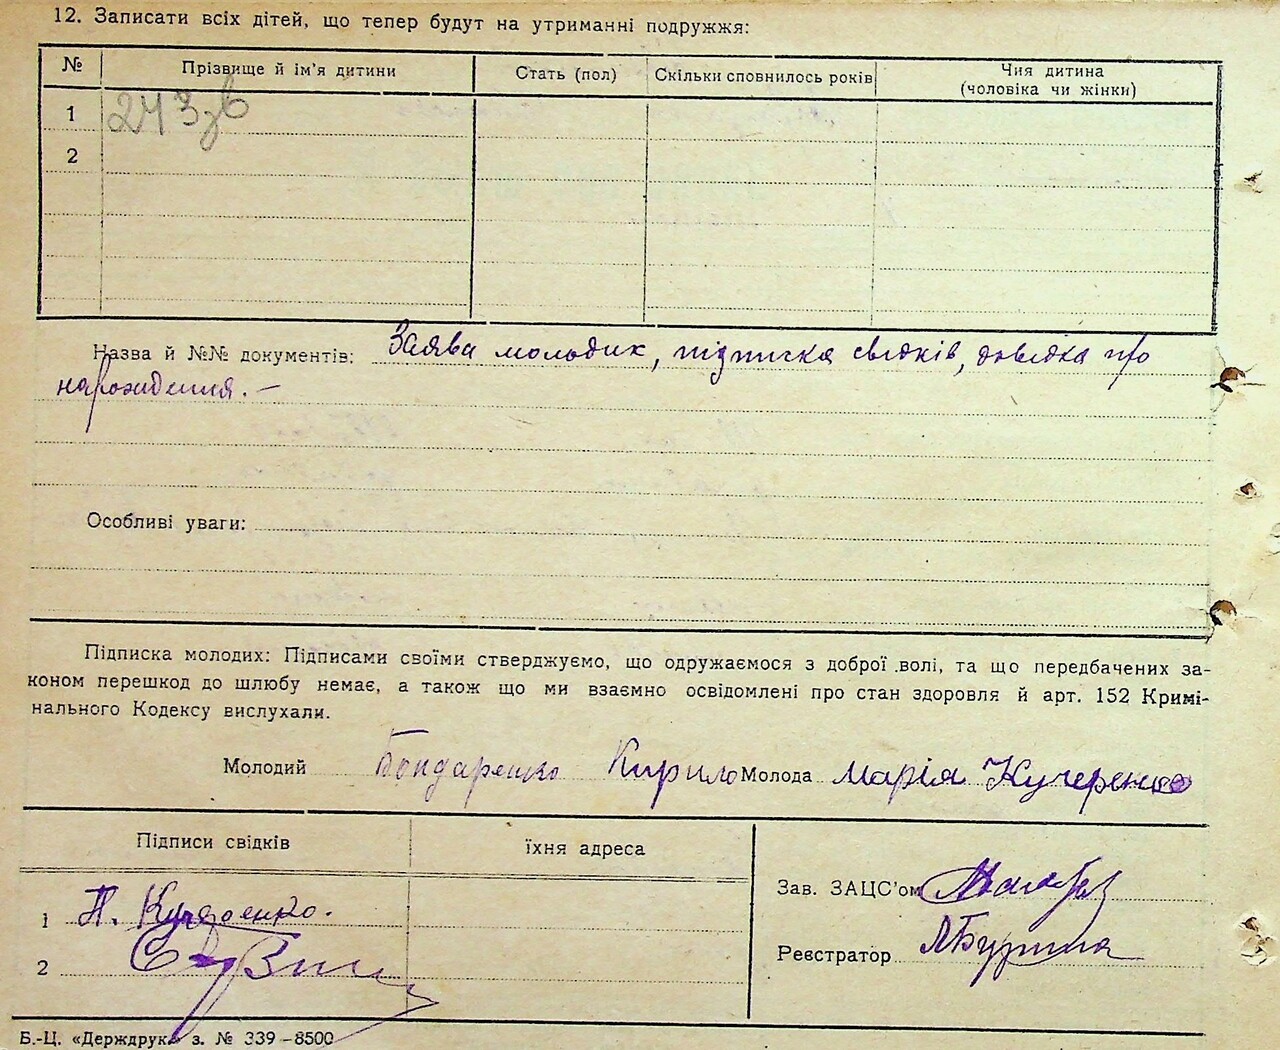 12. Записати всіх дітей, що тепер будут на утриманні подружжя:
№ Прізвище й ім'я дитини Стать (пол) Скільки сповнилось років Чия дитина
(чоловіка чи жінки)
1 243
2
Назва й №№ документів: Заява молодих, підписка свідків, довідка про
нарождення. —
Особливі уваги:
Підписка молодих: Підписами своїми стверджуємо, що одружаємося з доброї волі, та що передбачених за-
коном перешкод до шлюбу немає, а також що ми взаємно освідомлені про стан здоровля й арт. 152 Кримі-
нального Кодексу вислухали.
Молодий Бондаренко Кирило Молода Марія Кучеренко
Підписи свідків їхня адреса
Зав. ЗАЦС'ом
1 П. Кучеренко.
Реєстратор
2
Б.-Ц. «Держдрук» з. № 339–8500